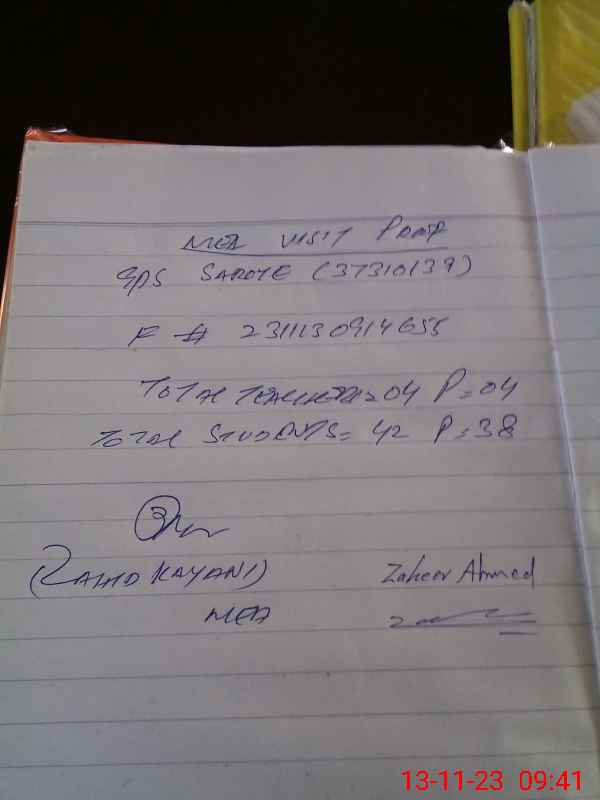 MEA VISIT PROOF
GPS SAROTE (37310139)
F # 2311130914655
TOTAL TEACHERS=04 P=04
TOTAL STUDENTS= 42 P=38
(ZAHID KAYANI) Zaheer Ahmed
MEA
13-11-23 09:41